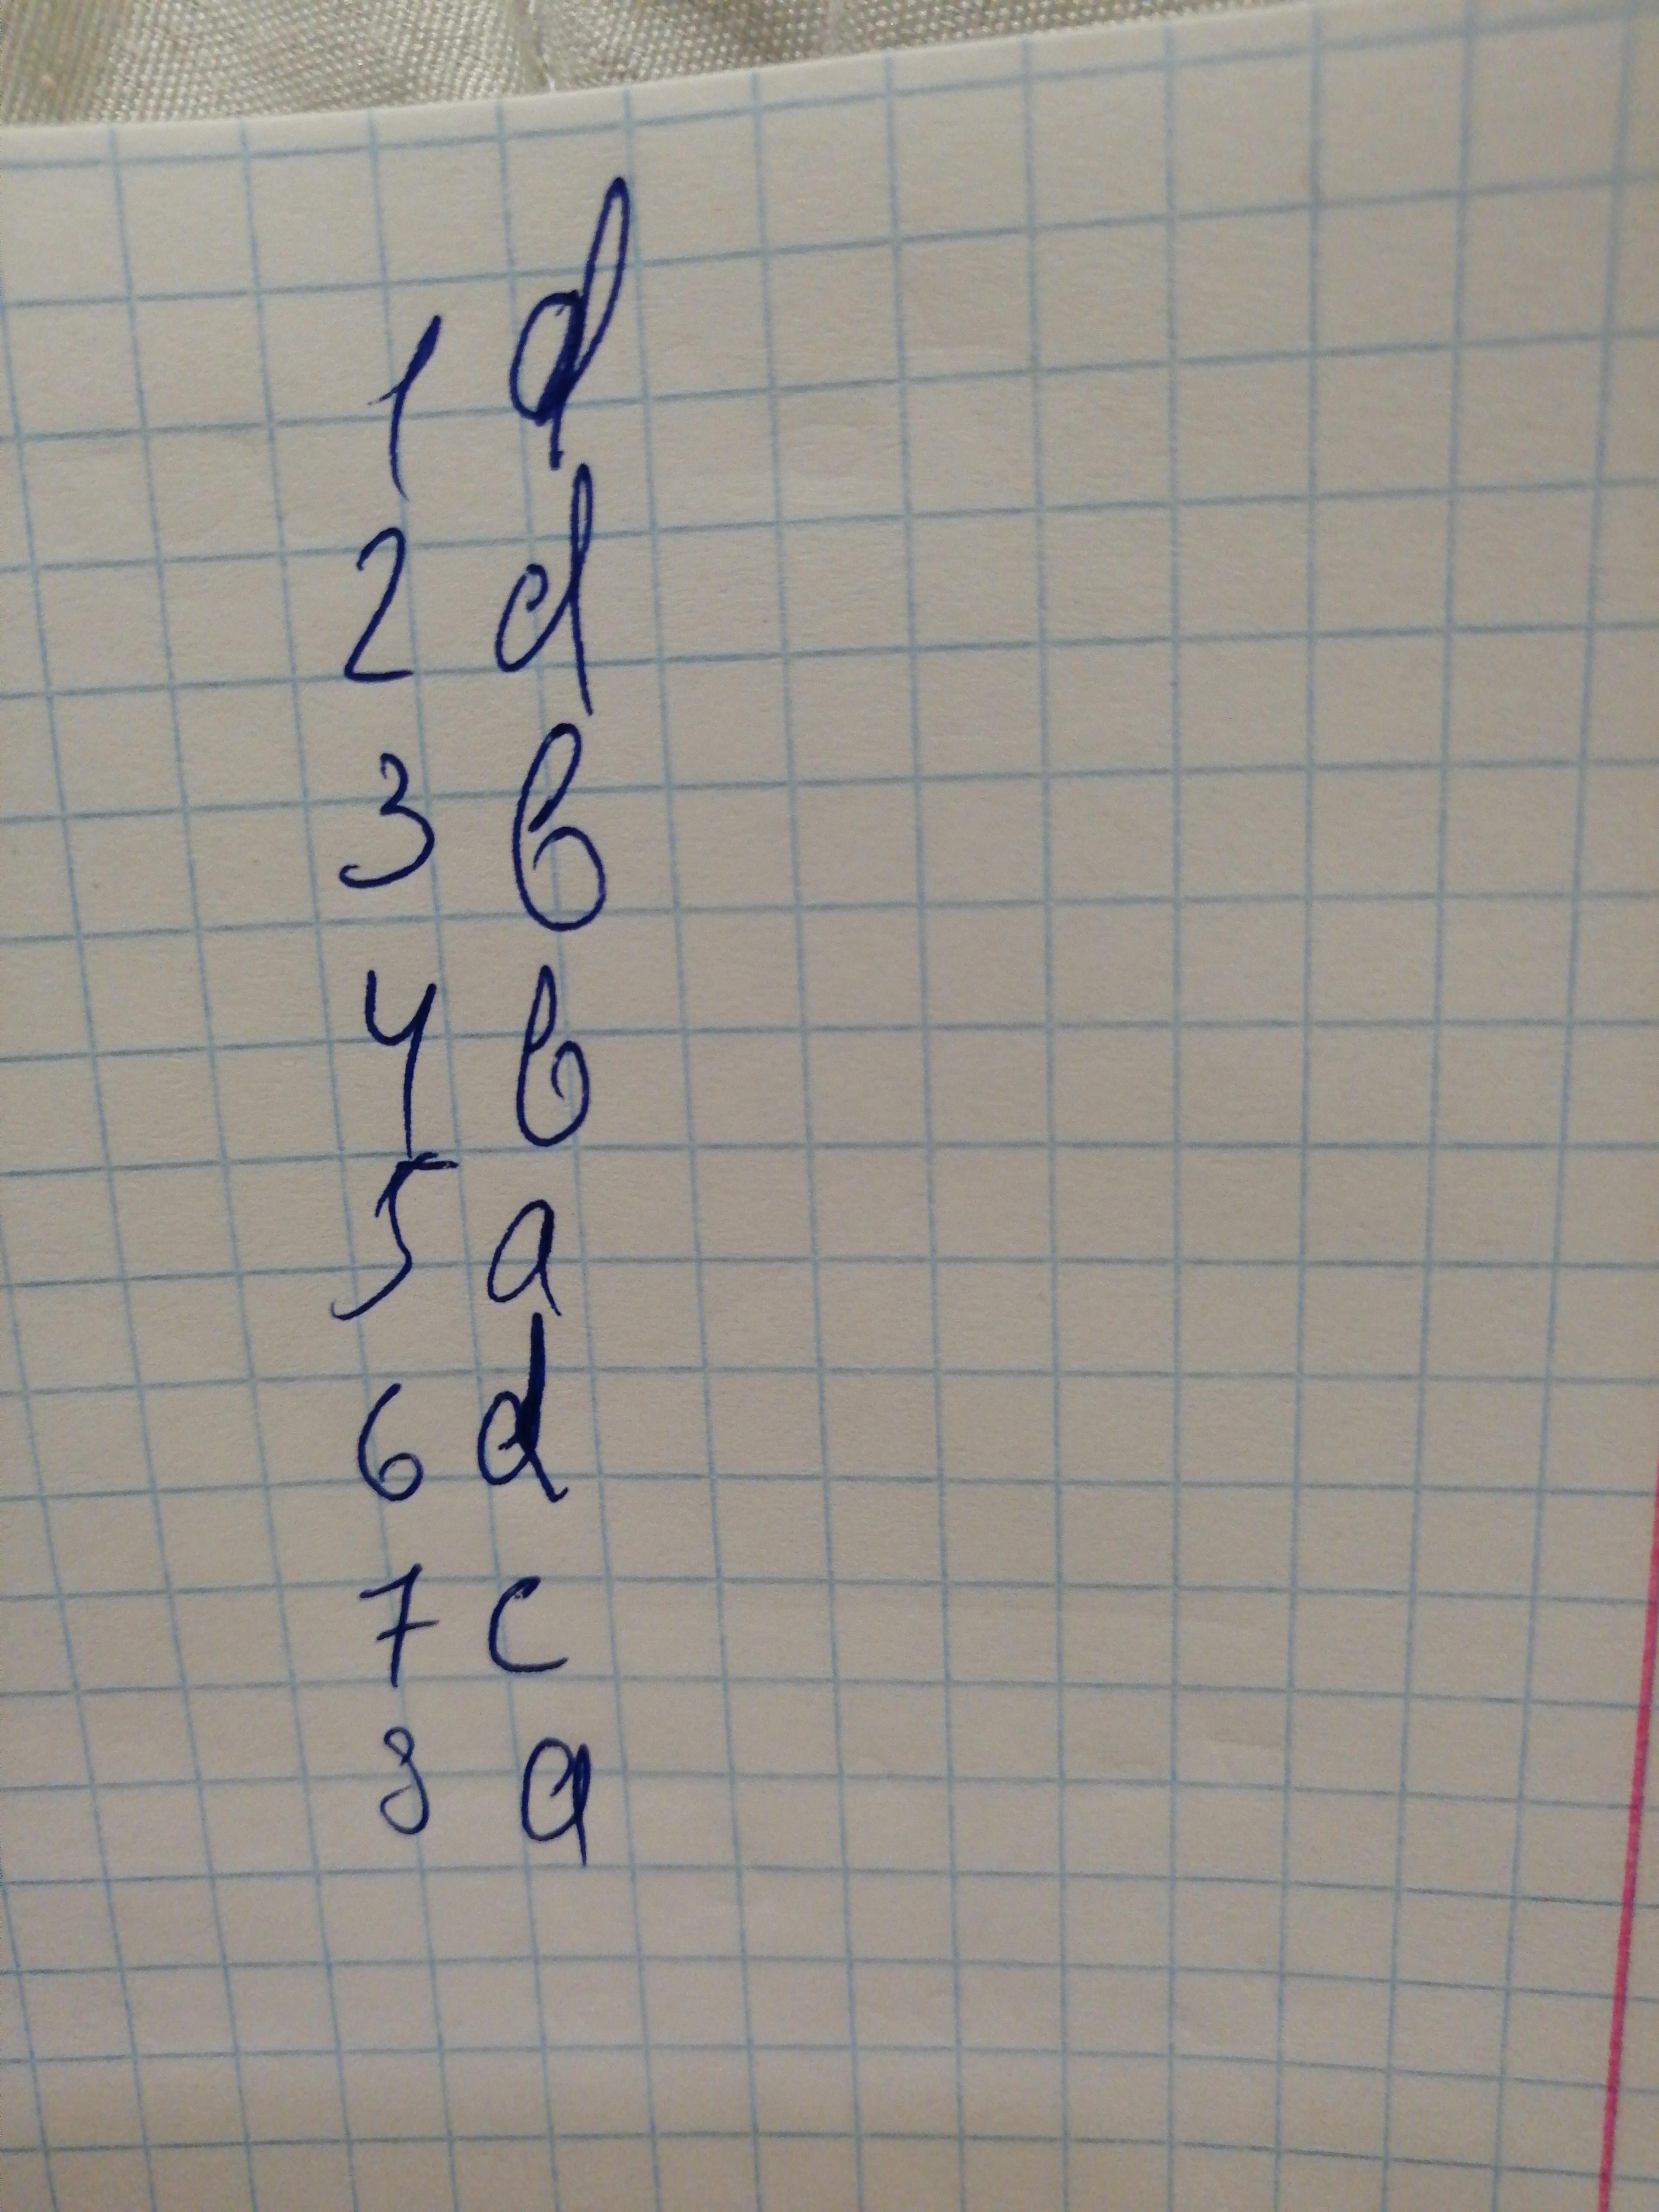 1 d
2 d
3 b
4 b
5 a
6 d
7 c
8 a